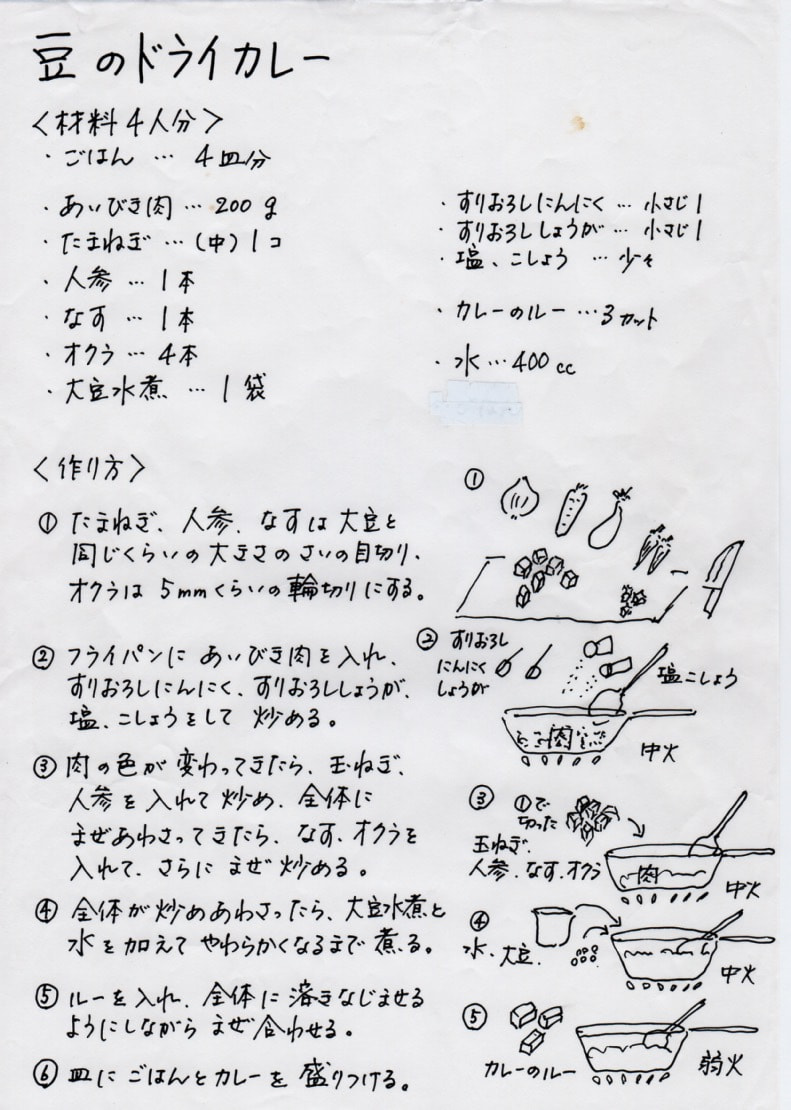 豆のドライカレー
〈材料4人分〉
・ごはん … 4皿分
・あいびき肉 … 200g
・たまねぎ …(中)1コ
・人参 … 1本
・なす … 1本
・オクラ … 4本
・大豆水煮 … 1袋
・すりおろしにんにく … 小さじ1
・すりおろししょうが … 小さじ1
・塩、こしょう … 少々
・カレーのルー … 3カット
・水 … 400cc
〈作り方〉
① たまねぎ、人参、なすは大豆と
同じくらいの大きさのさいの目切り、
オクラは5mmくらいの輪切りにする。
② フライパンにあいびき肉を入れ、
すりおろしにんにく、すりおろししょうが、
塩、こしょうをして炒める。
③ 肉の色が変わってきたら、玉ねぎ、
人参を入れて炒め、全体に
まぜあわさってきたら、なす、オクラを
入れて、さらにまぜ炒める。
④ 全体が炒めあわさったら、大豆水煮と
水を加えてやわらかくなるまで煮る。
⑤ ルーを入れ、全体に溶きなじませる
ようにしながらまぜ合わせる。
⑥ 皿にごはんとカレーを盛りつける。
①
② すりおろし
にんにく
しょうが
塩こしょう
肉
中火
③ ①で
切った
玉ねぎ、
人参、なす、オクラ
肉
中火
④
水、大豆、
中火
⑤
カレーのルー
弱火